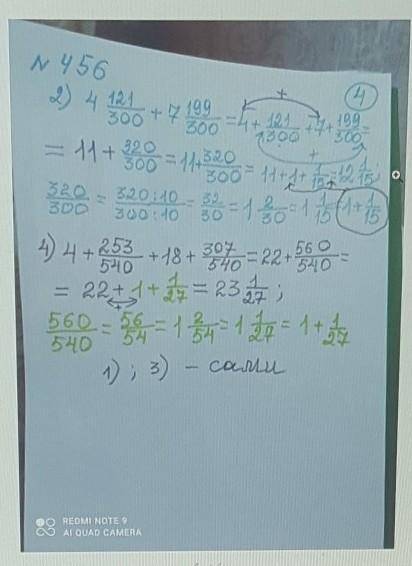 № 456
④
2) 4 121/300 + 7 199/300 = 4 + 121/300 + 7 + 199/300 =
= 11 + 320/300 = 11 + 320/300 = 11 + 1 + 1/15 = 12 1/15;
320/300 = 320:10/300:10 = 32/30 = 1 2/30 = 1 1/15 = 1 + 1/15
4) 4 + 253/540 + 18 + 307/540 = 22 + 560/540 =
= 22 + 1 + 1/27 = 23 1/27;
560/540 = 56/54 = 1 2/54 = 1 1/27 = 1 + 1/27
1); 3) - сами
REDMI NOTE 9
AI QUAD CAMERA